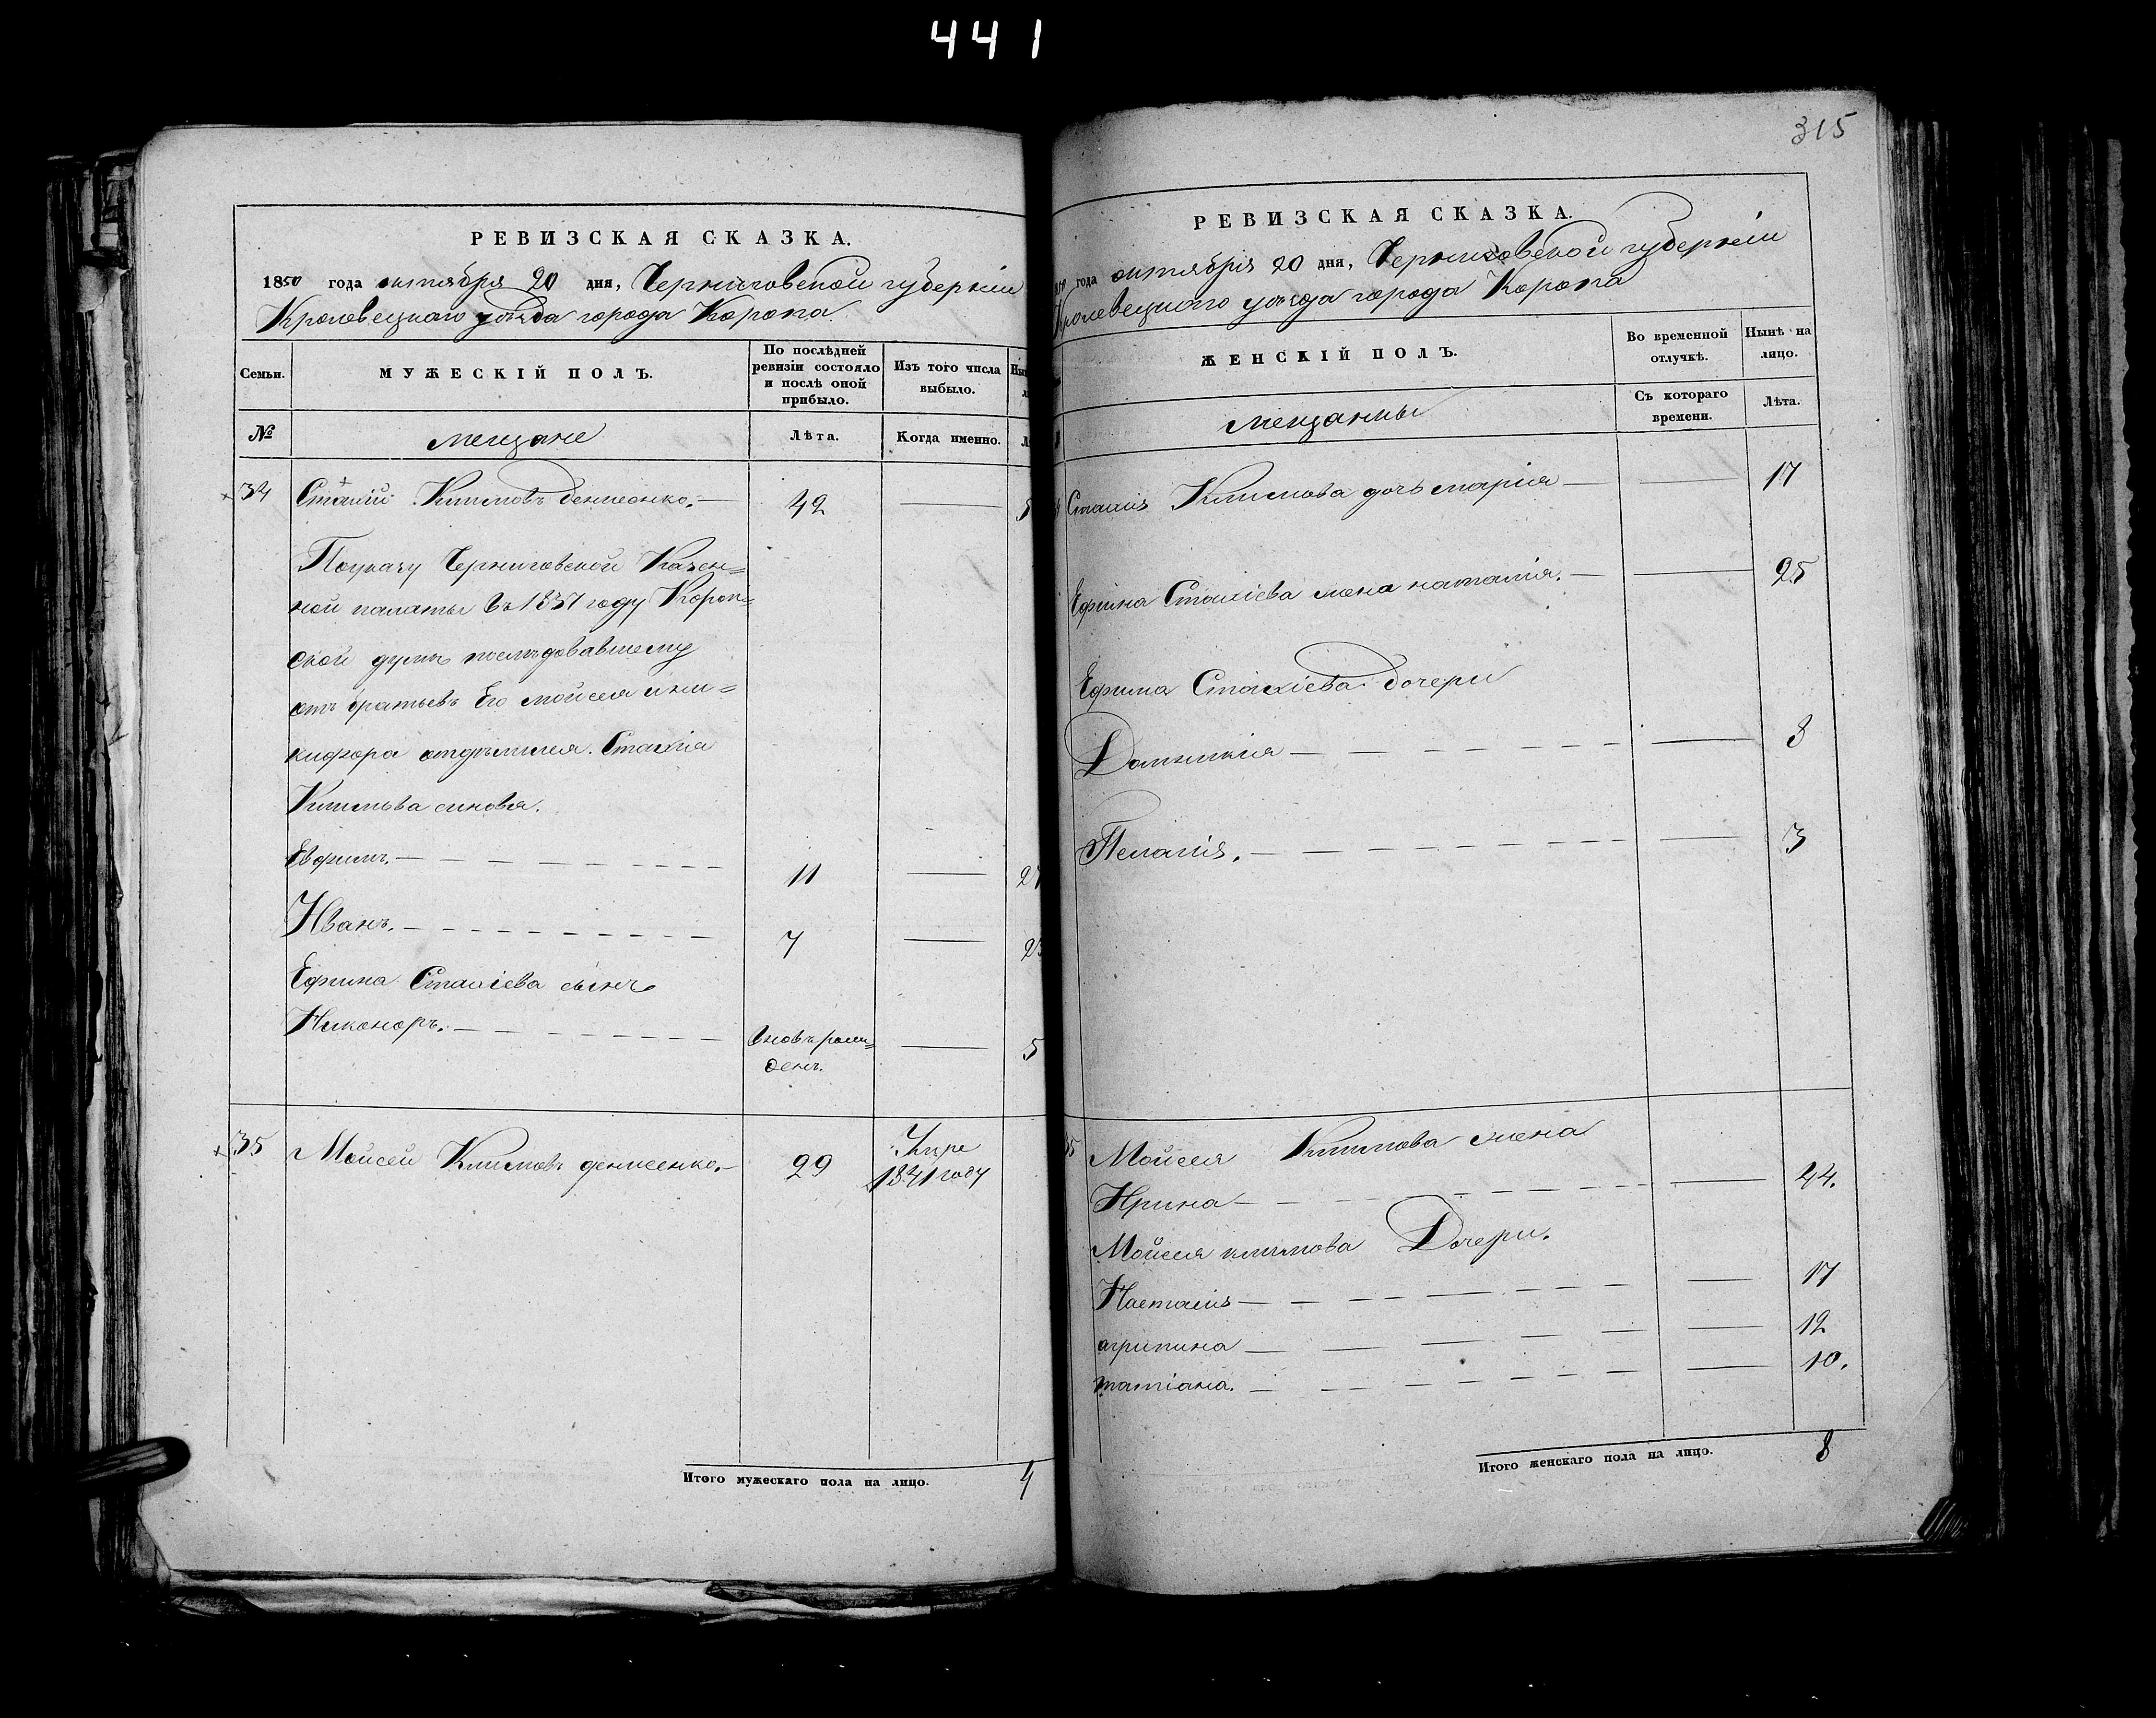 441
РЕВИЗСКАЯ СКАЗКА.
1850 года октября 20 дня, Черниговской губерніи
Кролевецкаго уѣзда города Коропа
Семьи. МУЖЕСКІЙ ПОЛЪ. По послѣдней ревизіи состояло и послѣ оной прибыло. Изъ того числа выбыло.
№ мещане Лѣта. Когда именно.
34 Стахій Климовъ Денисенко. — 42 —
Поуказу Черниговской Казен=
ной палаты въ 1837 году Короп=
ской думѣ последовавшему
отъ братьевъ Его Мойсея и Ни=
кифора отделился. Стахія
Климова синовья.
Ефримъ. — 11 — 27
Иванъ. — 7 — 23
Ефима Стахіева сынъ
Никоноръ. — вновь рож=
денъ. — 5
35 Мойсей Климовъ денисенко. — 29 Умре
1841 году
Итого мужескаго пола на лицо. 4
315
РЕВИЗСКАЯ СКАЗКА.
1850 года октября 20 дня, Черниговской губерніи
Кролевецкаго уѣзда города Коропа
ЖЕНСКІЙ ПОЛЪ. Во временной отлучкѣ. Нынѣ на лицо.
мещанки Съ котораго времени. Лѣта.
Стахія Климова дочь марія — — 17
Ефима Стахіева жена наталія. — — 25
Ефима Стахіева дочери
Домникія — — 8
Пелагія. — — 3
35 Мойсея Климова жена
Ирина — — 44.
Мойсея климова Дочери.
Настасія — — 17
агрипина — — 12
татіана. — — 10.
Итого женскаго пола на лицо. 8